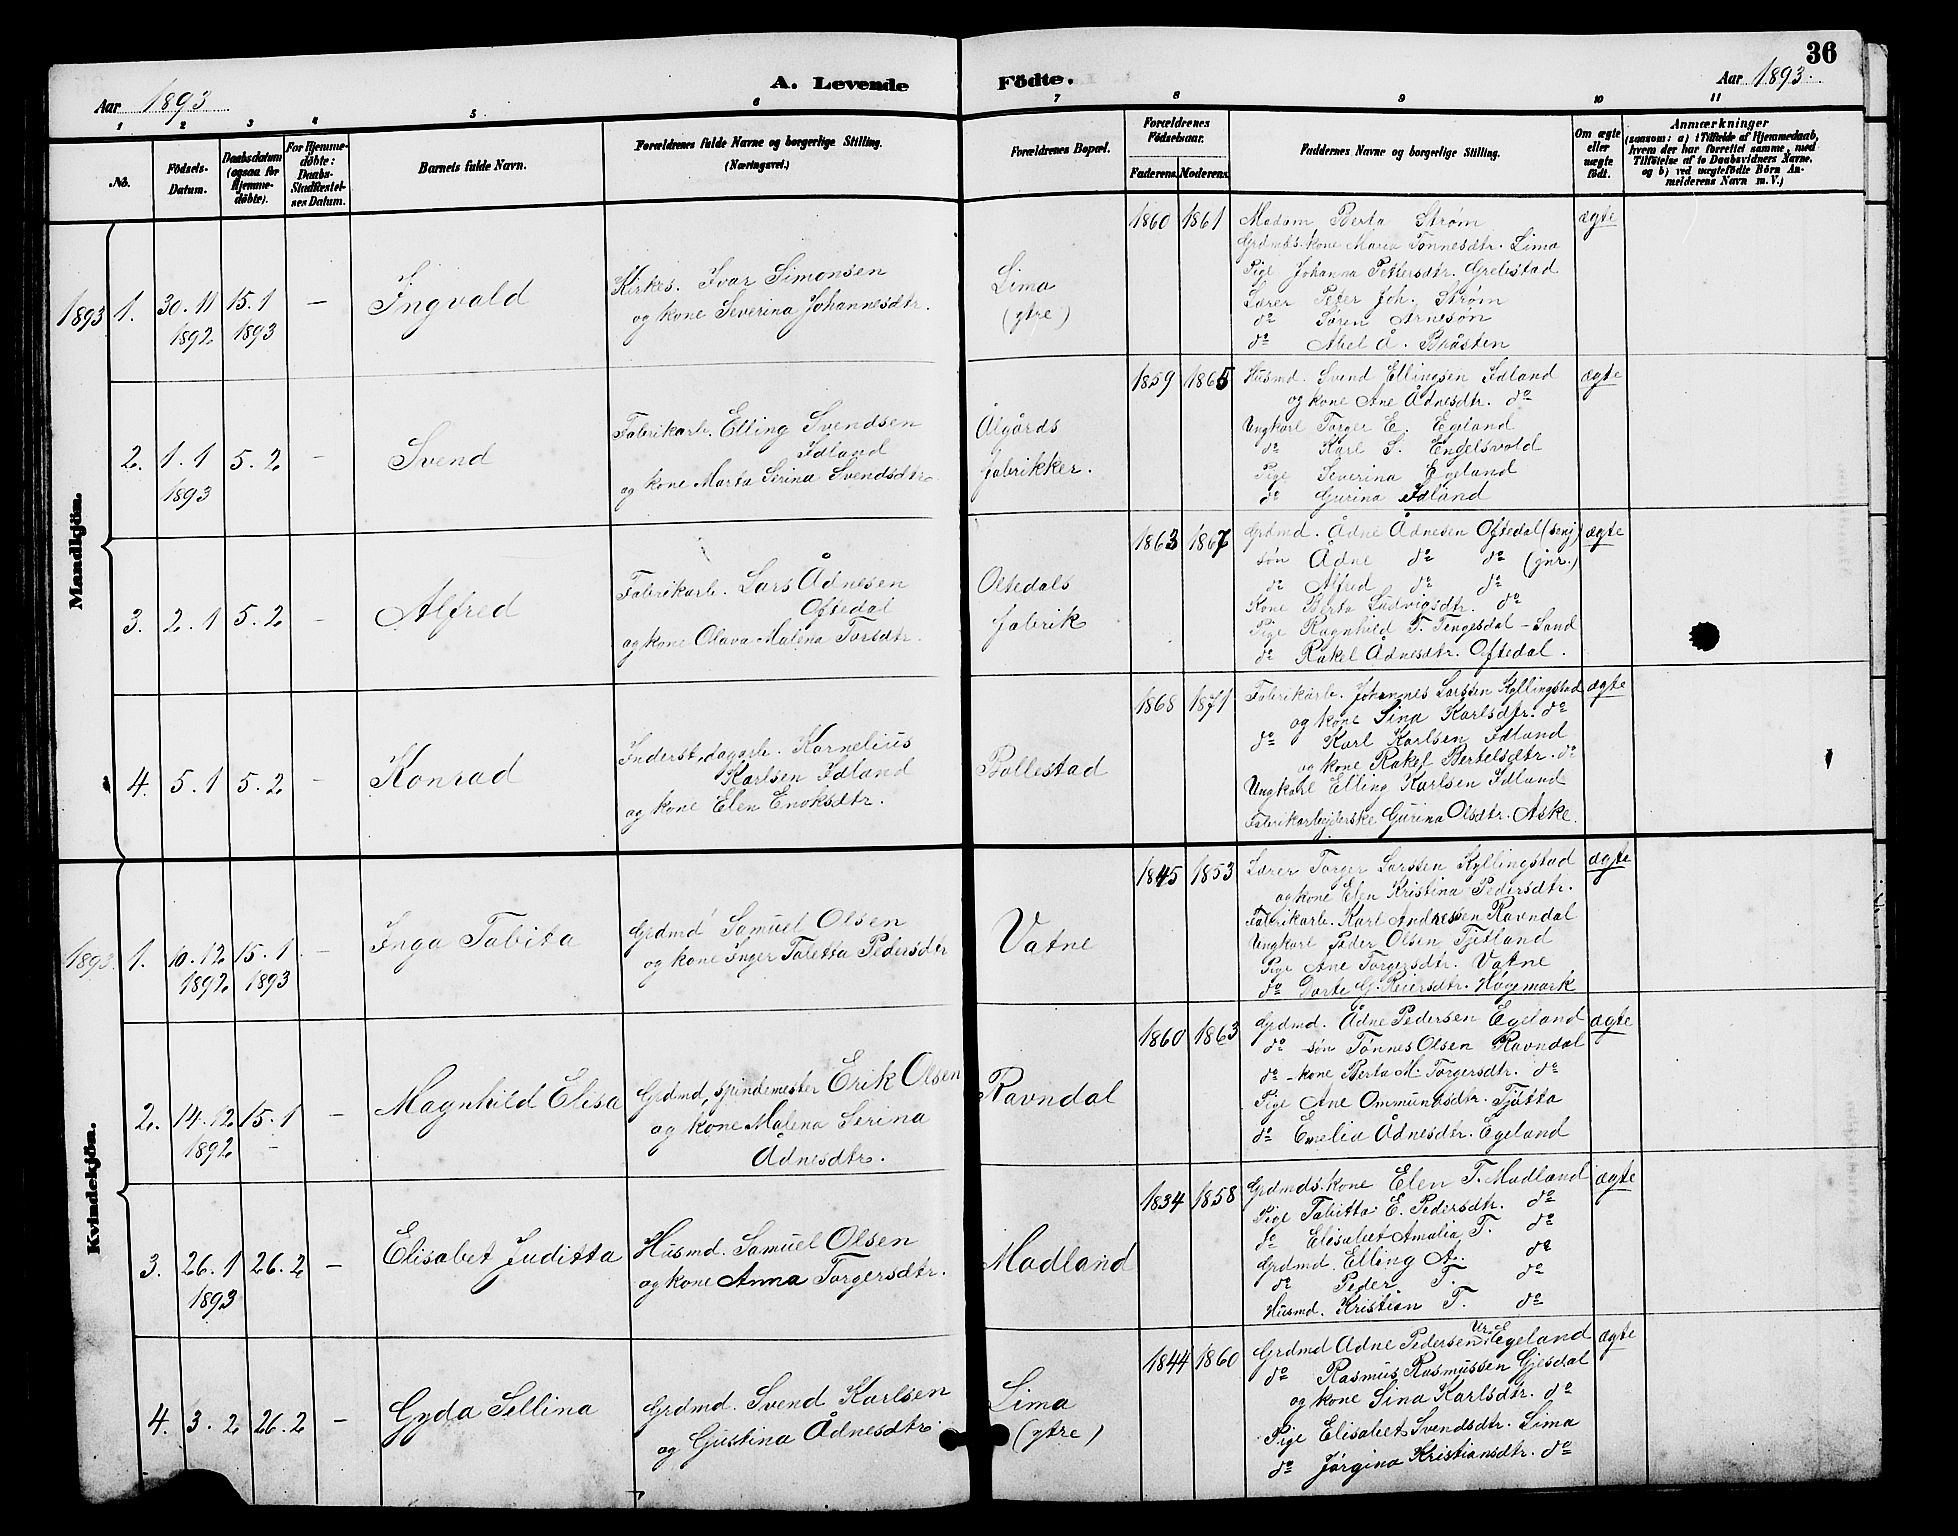 36
Aar 1893
A. Levende Födte.
Aar 1893.
1 2 3 4 5 6 7 8 9 10 11
No.
Födsels-Datum.
Daabsdatum (ogsaa for Hjemme-døbte).
For Hjemme-døbte: Daabs-Stadfæstel-ses Datum.
Barnets fulde Navn.
Forældrenes fulde Navne og borgerlige Stilling. (Næringsvei.)
Forældrenes Bopæl.
Forældrenes Födselsaar.
Faderens. Moderens.
Faddernes Navne og borgerlige Stilling.
Om ægte eller uægte født.
Anmærkninger
(saasom: a) i Tilfælde af Hjemmedaab, hvem der har forrettet samme, med Tilføielse af to Daabsvidners Navne, og b) ved uægtefödte Börn An-melderens Navn m. V.)
Mandkjön.
1893 1. 30.11 1892 15.1 1893 —
Ingvald
Kirkes. Ivar Simonsen
og kone Severina Johannesdtr.
Lima
(ytre)
1860 1861
Madam Berta Strøm
Grdmds. kone Maria Tonnesdtr. Lima
Pige Johanna Pettersdtr. Grelistad
Lærer Peter Joh. Strøm
do Søren Arnesøn
do Abel A. Bråsten
ægte
2. 1.1 1893 5.2 —
Svend
Fabrikarb. Elling Svendsen
Idland
og kone Marta Serina Svendsdtr.
Ålgårds
fabrikker.
1859 1865
Husmd. Svend Ellingsen Idland
og kone Ane Ådnesdtr. do
Ungkarl Torger E. Egeland
do Karl S. Engelsvold
Pige Severina Egeland
do Gurina Idland
ægte
3. 2.1 5.2 —
Alfred
Fabrikarb. Lars Ådnesen
Oftedal
og kone Olava Malena Torsdtr.
Oltedals
fabrik
1863 1867
Grdmd. Ådne Ådnesen Oftedal (senj)
søn Ådne do do (jnr.)
do Alfred do do
Kone Berta Ludvigsdtr. do
Pige Ragnhild T. Tengesdal - Sand
do Rakel Ådnesdtr. Oftedal.
ægte
4. 5.1 5.2 —
Konrad
Inderst, dagarb. Kornelius
Karlsen Idland
og kone Elen Enoksdtr.
Bollestad
1868 1871
Fabrikarb. Johannes Larssen Kyllingstad
og kone Sina Karlsdtr. do
do Karl Karlsen Idland
og kone Rakel Bertelsdtr. do
Ungkarl Elling Karlsen Idland
Fabrikarbeiderske Gurina Olsdtr. Aske.
ægte
Kvindekjön.
1893. 1. 10.12 1892 15.1 1893 —
Inga Tabita
Grdmd Samuel Olsen
og kone Inger Taletta Pedersdtr
Vatne
1845 1853
Lærer Torger Larssen Kyllingstad
og kone Elen Kristina Pedersdtr.
Fabrikarb. Karl Andressen Ravndal
Ungkarl Peder Olsen Tjetland
Pige Ane Torgersdtr. Vatne
do Dorte G. Reiersdtr. Høgemark
ægte
2. 14.12 1892 15.1 —
Magnhild Elisa
Grdmd, spindemester Erik Olsen
og kone Malena Serina
Ådnesdtr.
Ravndal
1860 1863
Grdmd. Ådne Pedersen Egeland
do - søn Tønnes Olsen Ravndal
do - kone Berta M. Torgersdtr. do
Pige Ane Ommundsdtr. Tjøtta
do Emelia Ådnesdtr. Egeland
ægte
3. 26.1 1893 26.2 —
Elisabet Juditta
Husmd. Samuel Olsen
og kone Anna Torgersdtr.
Madland
1834 1858
Grdmds. kone Elen T. Madland
Pige Tabitta E. Pedersdtr. do
do Elisabet Amalia T. do
Grdmd. Elling A. do
do Peder T. do
Husmd. Kristian T. do
ægte
4. 3.2 26.2 —
Gyda Sellina
Grdmd. Svend Karlsen
og Gustina Ådnesdtr.
Lima
(ytre)
1844 1860
Grdmd Adne Pedersen Egeland
do Rasmus Rasmussen Gjesdal
og kone Sina Karlsdtr. do
Pige Elisabet Svendsdtr. Lima
do Jørgina Kristiansdtr. do
ægte